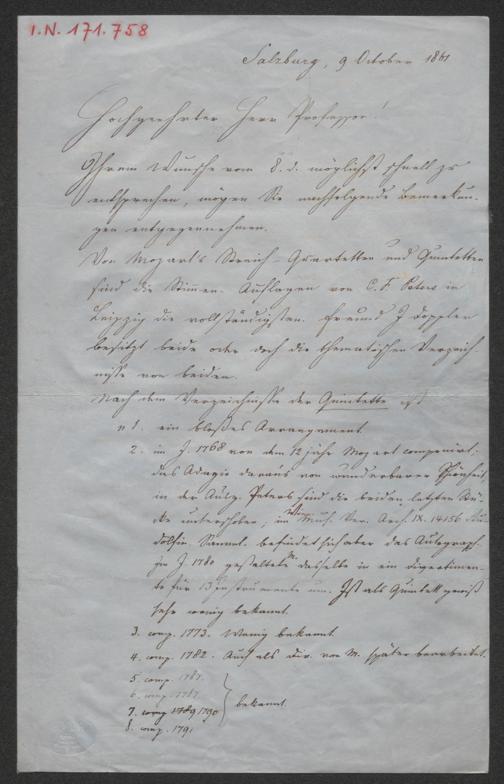 I.N. 171.758
Salzburg, 9 October 1861
Hochgeehrter Herr Professor!
Ihrem Wunsche vom 8. d. möglichst schnell zu
entsprechen, mögen Sie nachfolgende Bemerkun-
gen entgegennehmen.
Von Mozart's Streich-Quartetten und Quintetten
sind die Stimmen-Auflagen von C. F. Peters in
Leipzig die vollständigsten. Freund J Doppler
besitzt beide oder doch die thematischen Verzeich-
nisse von beiden.
Nach dem Verzeichnisse der Quintette ist
n 1. ein bloßes Arrangement.
2. im J. 1768 von dem 12 jähr Mozart componirt.
das Adagio daraus von wunderbarer Schönheit
in der Ausg. Peters sind die beiden letzten Stü-
cke unterschoben, im Wien Mus. Ver. Arch. IX. 14156
Samml. befindet sich aber das Autograph.
Im J. 1780 gestaltete M. dasselbe in ein
für 13 Instrumente um. Ist als Quintett gewiß
sehr wenig bekannt.
3. comp. 1773. Wenig bekannt.
4. comp. 1782. Auch als von M. später bearbeitet.
5 comp. 1787.
6. comp. 1787
7. comp 1789 1790 bekannt.
8. comp. 1791